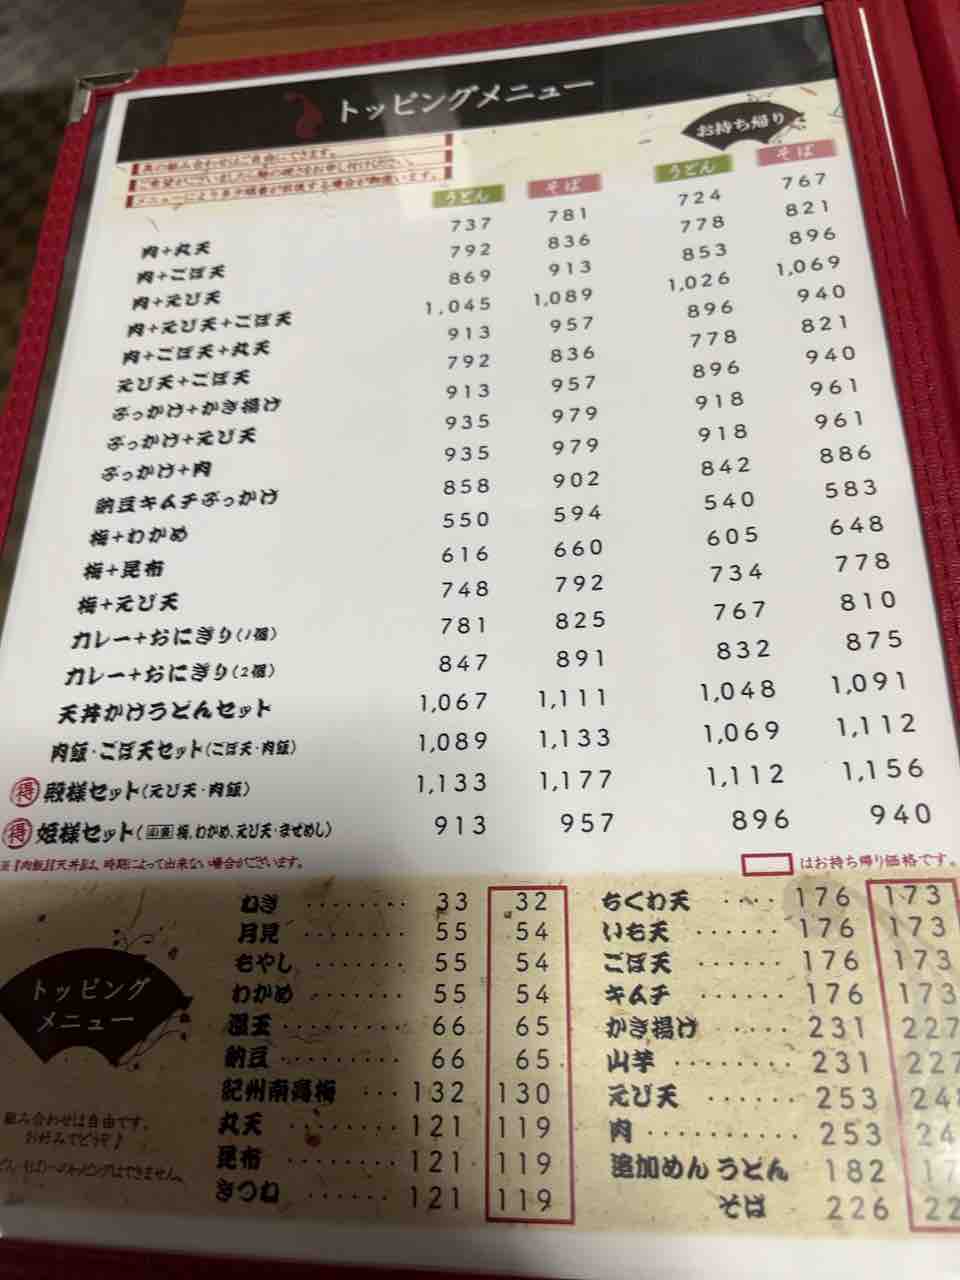 トッピングメニュー
お持ち帰り
具の組み合わせはご自由にできます。
うどん そば うどん そば
肉+丸天 737 781 724 767
肉+ごぼ天 792 836 778 821
肉+えび天 869 913 853 896
肉+えび天+ごぼ天 1,045 1,089 1,026 1,069
肉+ごぼ天+丸天 913 957 896 940
えび天+ごぼ天 792 836 778 821
ぶっかけ+かき揚げ 913 957 896 940
ぶっかけ+えび天 935 979 918 961
ぶっかけ+肉 935 979 918 961
納豆キムチぶっかけ 858 902 842 886
梅+わかめ 550 594 540 583
梅+昆布 616 660 605 648
梅+えび天 748 792 734 778
カレー+おにぎり(1個) 781 825 767 810
カレー+おにぎり(2個) 847 891 832 875
天丼かけうどんセット 1,067 1,111 1,048 1,091
肉飯・ごぼ天セット(ごぼ天・肉飯) 1,089 1,133 1,069 1,112
得 殿様セット(えび天・肉飯) 1,133 1,177 1,112 1,156
得 姫様セット(梅、わかめ、えび天・まぜめし) 913 957 896 940
※【肉飯】【天丼】は、時期によって出来ない場合がございます。
はお持ち帰り価格です。
トッピング
メニュー
組み合わせは自由です。
お好みでどうぞ♪
ねぎ ········ 33 32
月見 ········ 55 54
もやし ······· 55 54
わかめ ······· 55 54
温玉 ········ 66 65
納豆 ········ 66 65
紀州南高梅 ··· 132 130
丸天 ······· 121 119
昆布 ······· 121 119
きつね ······ 121 119
ちくわ天 ···· 176 173
いも天 ······ 176 173
ごぼ天 ······ 176 173
キムチ ······ 176 173
かき揚げ ····· 231 227
山芋 ········ 231 227
えび天 ······ 253
肉 ·········· 253
追加めん うどん 182
そば 226